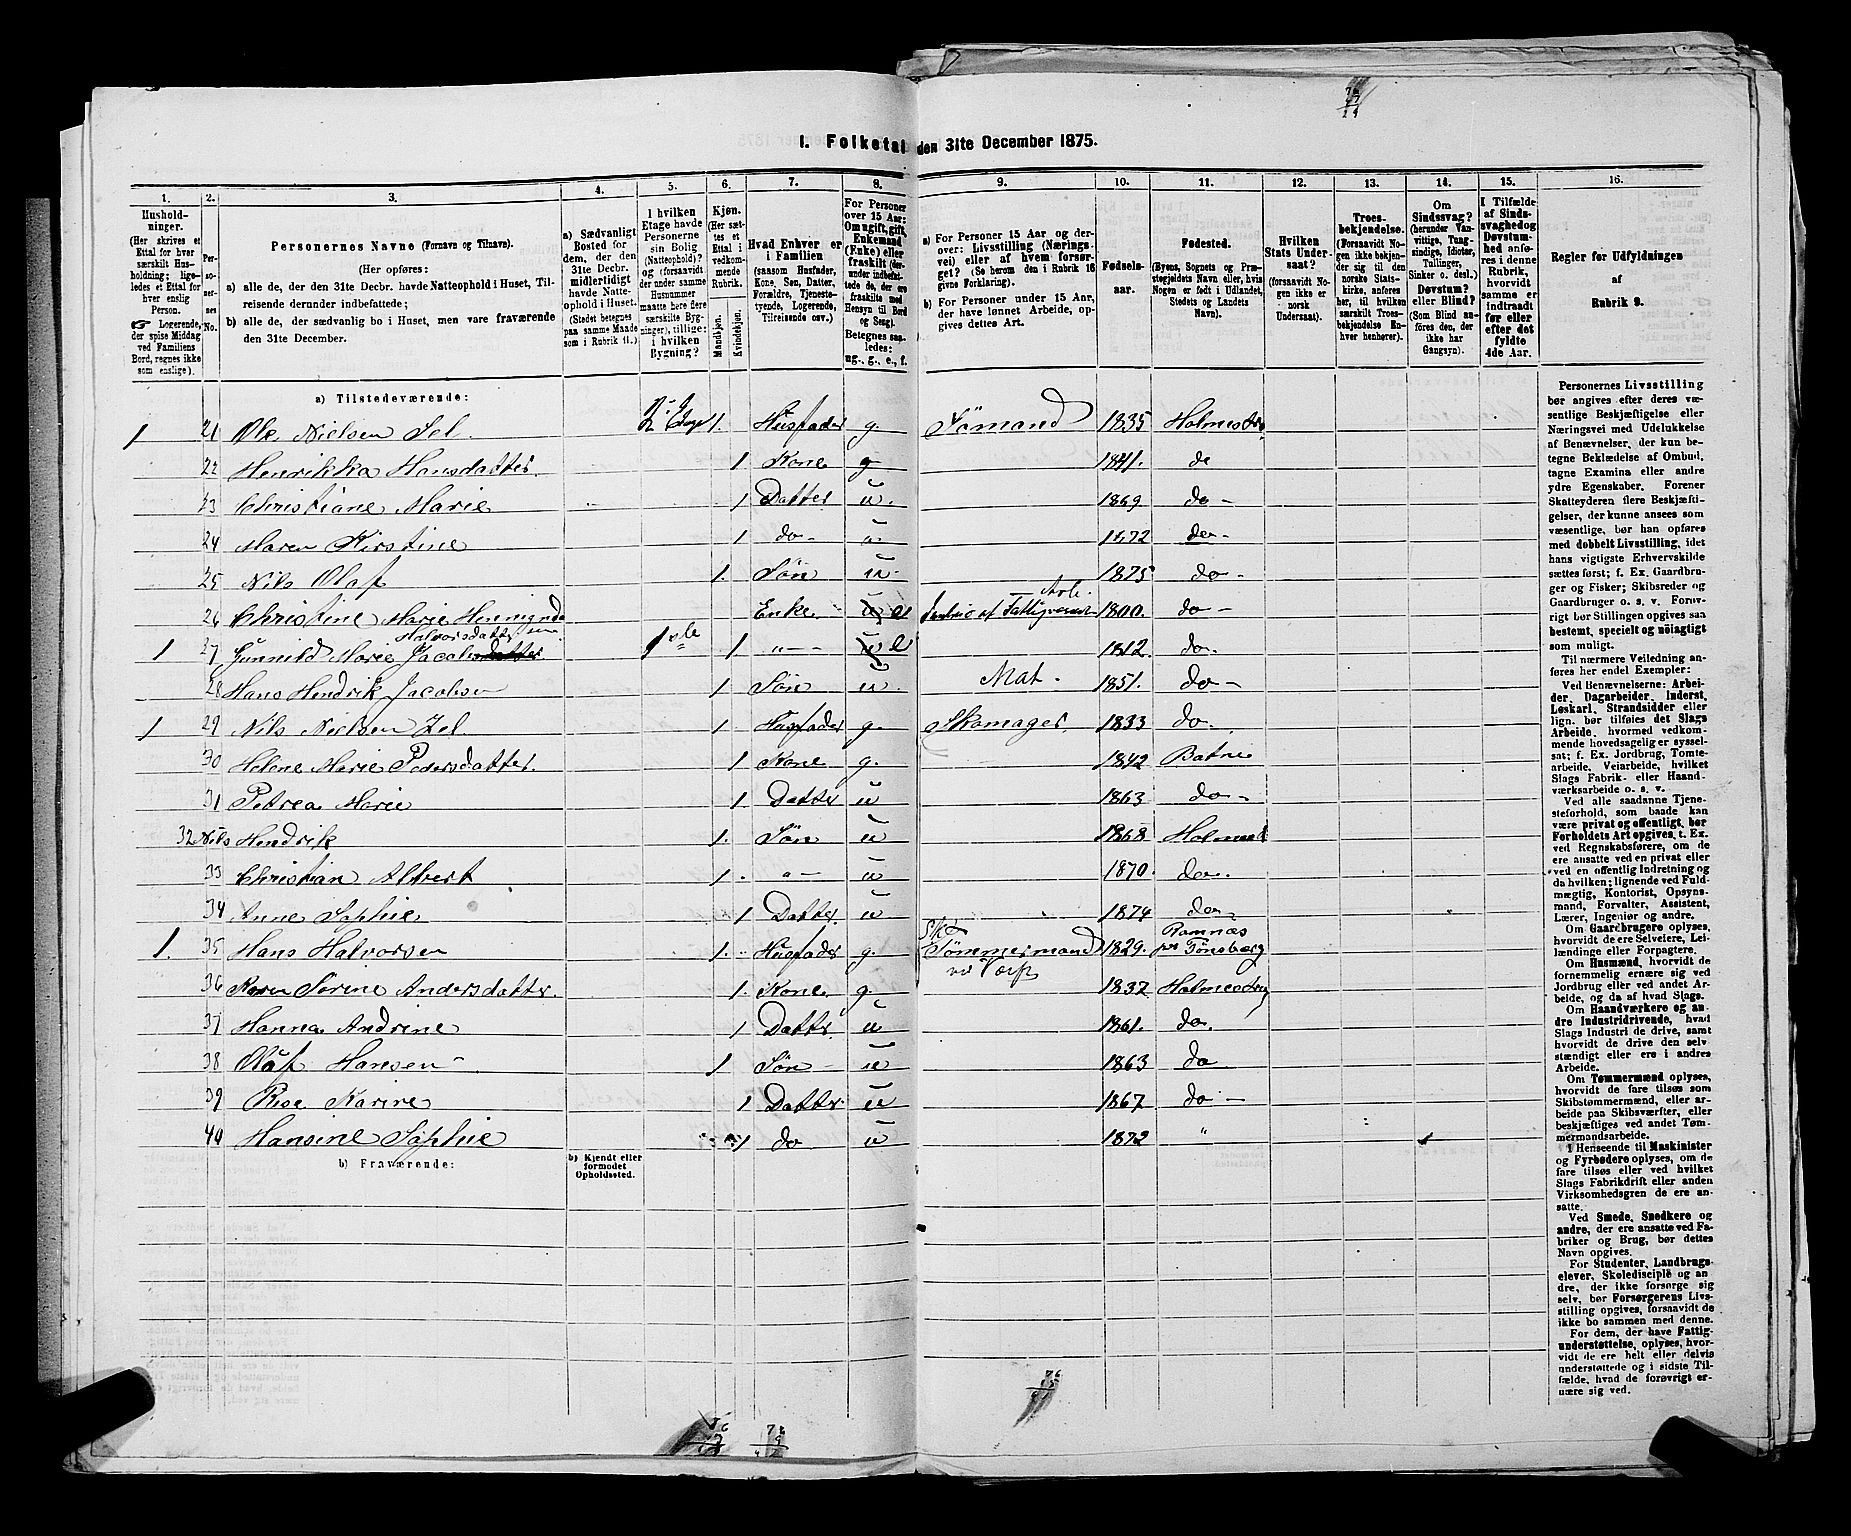 I. Folketal den 31te December 1875.
1. 2. 3. 4. 5. 6. 7. 8. 9. 10. 11. 12. 13. 14. 15. 16.
Husholdninger.
(Her skrives et Ettal for hver særskilt Husholdning; ligeledes et Ettal for hver enslig Person.
☞ Logerende, der spise Middag ved Familiens Bord, regnes ikke som enslige).
Personernes No.
Personernes Navne (Fornavn og Tilnavn).
(Her opføres:
a) alle de, der den 31te Decbr. havde Natteophold i Huset, Tilreisende derunder indbefattede;
b) alle de, der sædvanlig bo i Huset, men vare fraværende den 31te December.
a) Sædvanligt Bosted for dem, der den 31te Decbr. midlertidigt havde Natteophold i Huset. (Stedet betegnes paa samme Maade som i Rubrik 11.)
I hvilken Etage havde Personerne sin Bolig (Natteophold)? og (forsaavidt der under samme Husnummer maatte være flere særskilte Bygninger), tillige: i hvilken Bygning?
Kjøn. (Her sættes et Ettal i vedkommende Rubrik.
Mandkjøn. Kvindekjøn.
Hvad Enhver er i Familien
(saasom Husfader, Kone, Søn, Datter, Forældre, Tjenestetyende, Logerende, Tilreisende osv.)
For Personer over 15 Aar: Om ugift, gift, Enkemand (Enke) eller fraskilt (derunder indbefattede de, der ere fraskilte med Hensyn til Bord og Seng). Betegnes saaledes: ug., g., e., f.
a) For Personer 15 Aar og derover: Livsstilling (Næringsvei) eller af hvem forsørget? (Se herom den i Rubrik 16 givne Forklaring).
b) For Personer under 15 Aar, der have lønnet Arbeide, opgives dettes Art.
Fødselsaar.
Fødested.
(Byens, Sognets og Præstegjeldets Navn eller, hvis Nogen er født i Udlandet, Stedets og Landets Navn).
Hvilken Stats Undersaat?
(forsaavidt Nogen ikke er norsk Undersaat).
Troesbekjendelse.
(Forsaavidt Nogen ikke bekjender sig til den norske Statskirke, anføres her, til hvilken særskilt Troesbekjendelse Enhver henhører).
Om Sindssvag? (herunder Vanvittige, Tungsindige, Idioter, Tullinger, Sinker o. desl.) Døvstum? eller Blind? (Som Blind anføres den, der ikke har Gangsyn).
I Tilfælde af Sindssvaghed og Døvstumhed anføres i denne Rubrik, hvorvidt samme er indtraadt før eller efter det fyldte 4de Aar.
Regler for Udfyldningen af Rubrik 9.
a) Tilstedeværende:
1 21 Ole Nielsen Sel. 2. Etage 1. Husfader g. Sömand 1835 Holmestr.
22 Henrikka Hansdatter. 1 Kone g 1841. do
23 Christiane Marie 1 Datter u. 1869 do -
24 Maren Kirstine 1 do - u 1872 do -
25 Nils Olaf 1. Sön u 1875 do -
26 Christine Marie Enke e af Fattigvæsenet 1800. do -
1 27 Gunnild Marie Halvorsdatter Jacobsdatter 1ste 1 " - e 1812. do.
28 Hans Hendrik Jacobsen 1 Sön u. Mat. 1851. do -
1 29 Nils Nielsen Sel. 1 Husfader g. Skomager. 1833 do.
30 Helene Marie Pedersdatter. 1 Kone g. 1842 Botne
31 Petrea Marie 1 Datter u 1863 do -
32 Nils Hendrik 1. Sön u 1868 Holmest
33 Christian Albert 1. " - u 1870. do.
34 Anne Sophie 1 Datter u 1874 do -
1. 35 Hans Halvorsen 1. Husfader g. Tömmermand ved Værft 1829. Ramnæs pr Tönsberg
36 Karen Sörine Andersdatter. 1. Kone g. 1837 Holmestr
37 Hanna Andrine 1 Datter u 1861. do.
38 Olaf Hansen - 1 Sön - u 1863 do
39 Karine 1 Datter u 1867 do -
40 Hansine Sophie 1 do u 1872 "
b) Fraværende:
b) Kjendt eller formodet Opholdssted.
Personernes Livsstilling bør angives efter deres væsentlige Beskjæftigelse eller Næringsvei med Udelukkelse af Benævnelser, der kun betegne Beklædelse af Ombud, tagne Examina eller andre ydre Egenskaber. Forener Skatteyderen flere Beskjæftigelser, der kunne ansees som væsentlige, bør han opføres med dobbelt Livsstilling, idet hans vigtigste Erhvervskilde sættes først; f. Ex. Gaardbruger og Fisker; Skibsreder og Gaardbruger o. s. v. Forøvrigt bør Stillingen opgives saa bestemt, specielt og nøiagtigt som muligt.
Til nærmere Veiledning anføres her endel Exempler:
Ved Benævnelserne: Arbeider, Dagarbeider, Inderst, Løskarl, Strandsidder eller lign. bør tilføies det Slags Arbeide, hvormed vedkommende hovedsagelig er sysselsat; f. Ex. Jordbrug, Tomtearbeide, Veiarbeide, hvilket Slags Fabrik- eller Haandværksarbeide o. s. v.
Ved alle saadanne Tjenesteforhold, som baade kan være privat og offentligt, bør Forholdets Art opgives, t. Ex. ved Regnskabsførere, om de ere ansatte ved en privat eller ved en offentlig Indretning og da hvilken; lignende ved Fuldmægtig, Kontorist, Opsynsmand, Forvalter, Assistent, Lærer, Ingeniør og andre.
Om Gaardbrugere oplyses, hvorvidt de ere Selveiere, Leilændinge eller Forpagtere.
Om Husmænd, hvorvidt de fornemmelig ernære sig ved Jordbrug eller ved andet Arbeide, og da af hvad Slags.
Om Haandværkere og andre Industridrivende, hvad Slags Industri de drive, samt hvorvidt de drive den selvstændigt eller ere i andres Arbeide.
Om Tømmermænd oplyses, hvorvidt de fare tilsøs som Skibstømmermænd, eller arbeide paa Skibsværfter, eller beskjæftiges ved andet Tømmermandsarbeide.
I Henseende til Maskinister og Fyrbødere oplyses, om de fare tilsøs eller ved hvilket Slags Fabrikdrift eller anden Virksomhedsgren de ere ansatte.
Ved Smede, Snedkere og andre, der ere ansatte ved Fabriker og Brug, bør dettes Navn opgives.
For Studenter, Landbrugselever, Skoledisciple og andre, der ikke forsørge sig selv, bør Forsørgerens Livsstilling opgives, forsaavidt de ikke bo sammen med denne.
For dem, der have Fattigunderstøttelse, oplyses, hvorvidt de ere helt eller delvis understøttede og i sidste Tilfælde, hvad de forøvrigt ernære sig ved.